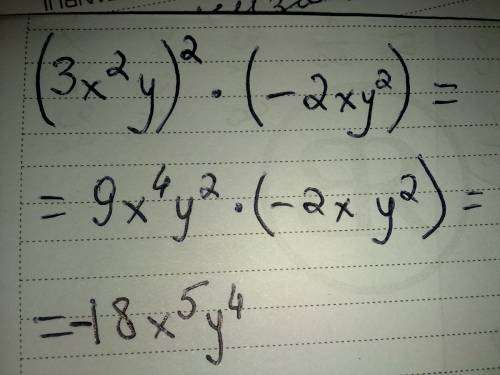 (3x²y)² · (-2xy²) =
= 9x⁴y² · (-2xy²) =
= -18x⁵y⁴